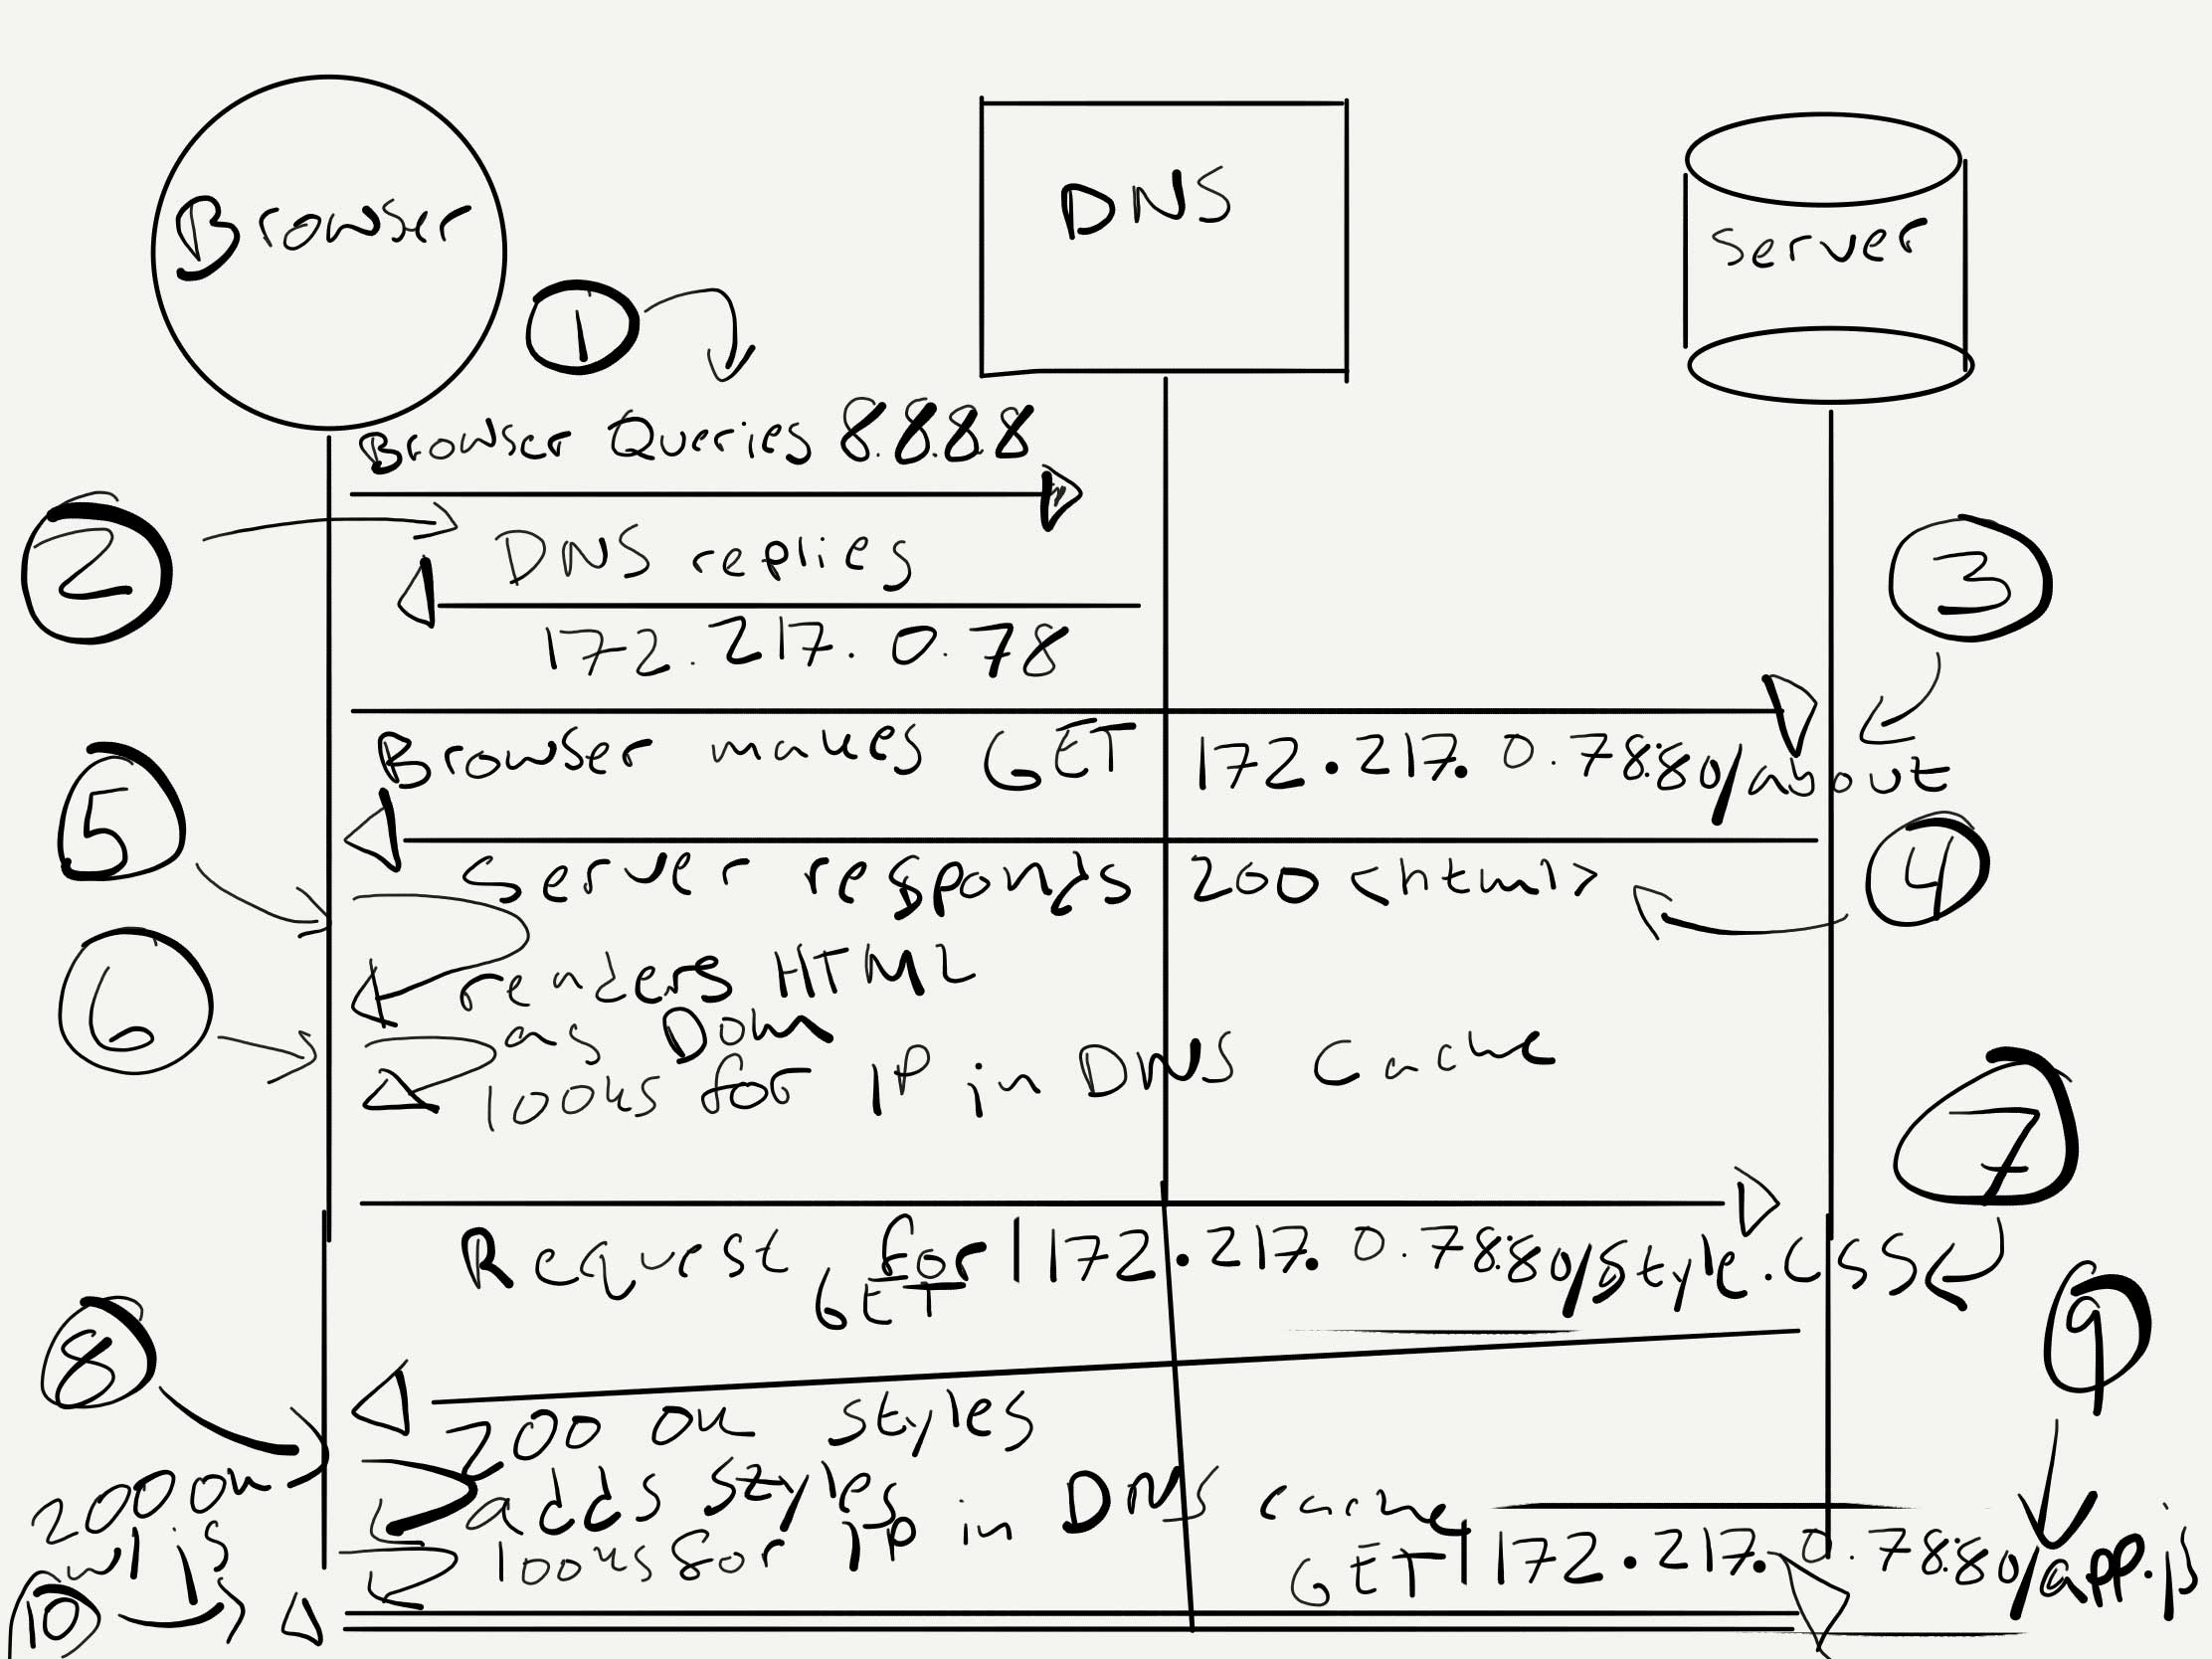 Browser
DNS
Server
1
Browser Queries 8.8.8.8
2
DNS replies
3
172.217.0.78
Browser makes GET 172.217.0.78:80/about
5
Server responds 200 <html>
4
6
renders HTML
as Dom
looks for IP in DNS cache
7
Request for 172.217.0.78:80/style.css
GET
8
9
200 ok styles
adds styles
looks for IP in DNS cache
GET 172.217.0.78:80/app.js
200 ok
w/ js
10